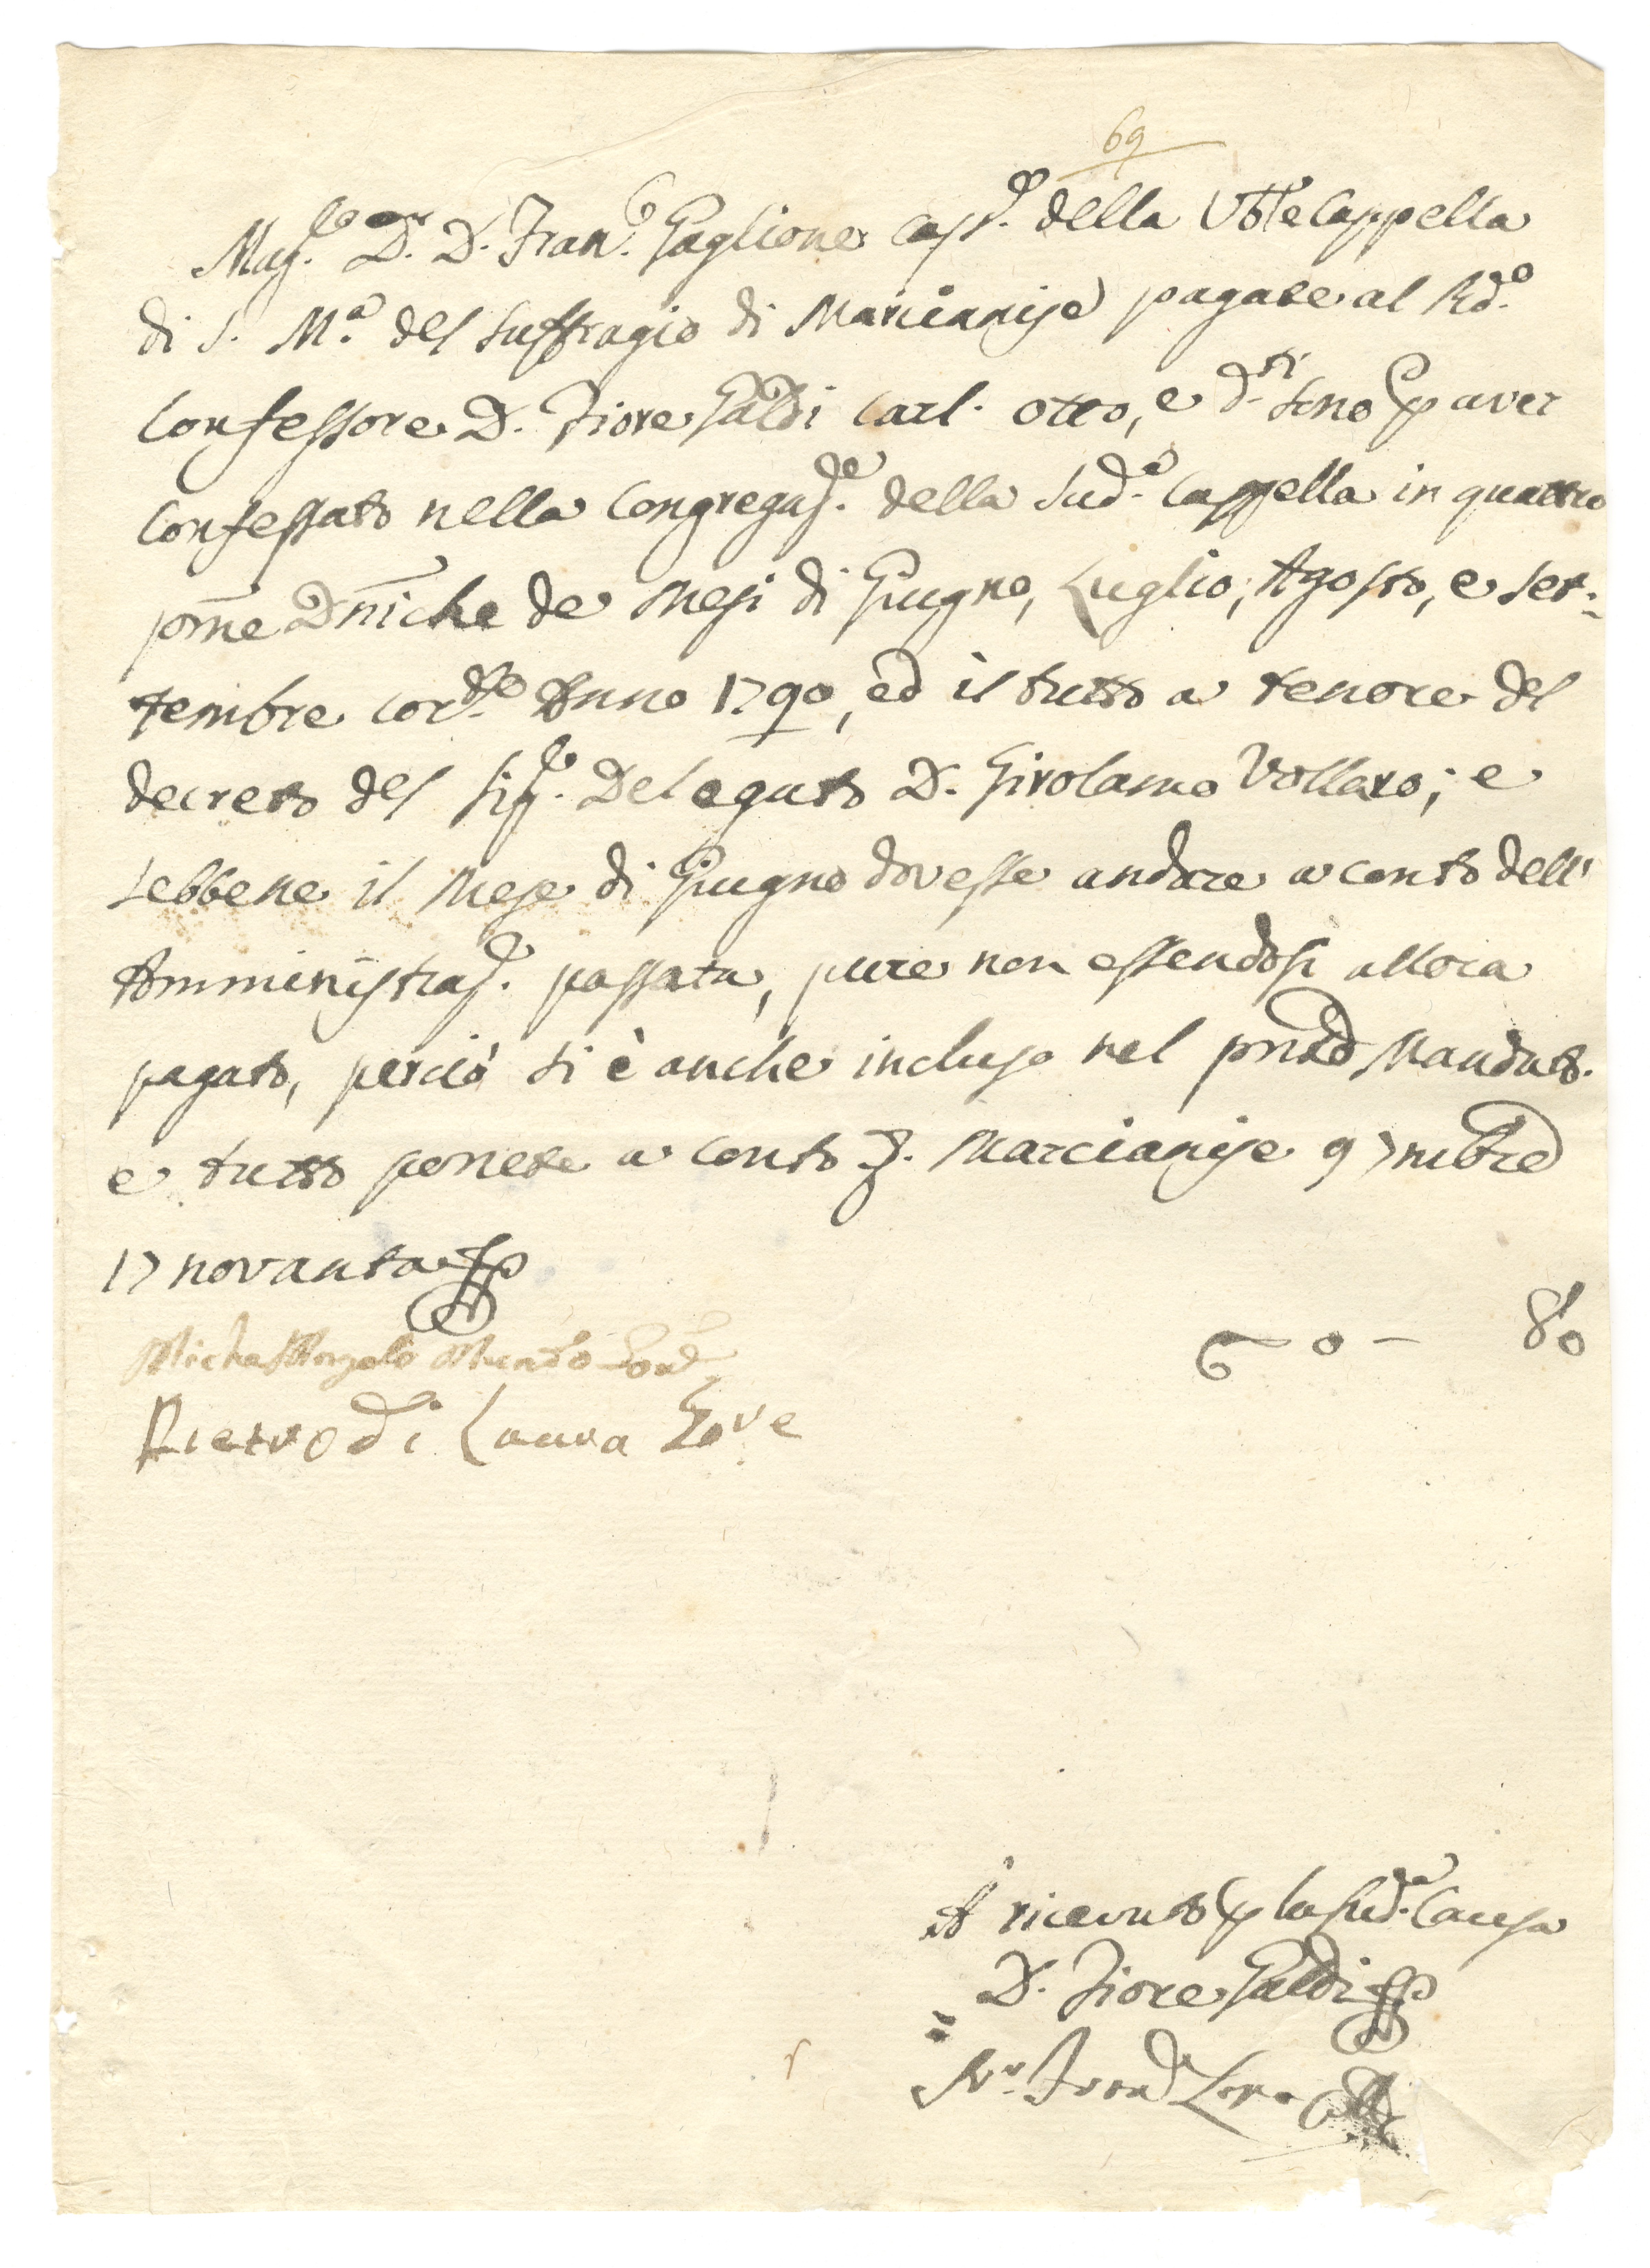 69
Mag.co Dr. D. Fran.co Gaglione Cass.e della Vble Cappella
di S. M.a del Suffragio di Marcianise pagate al Rd.o
Confessore D. Fiore Galdi carl. otto, e d.ti sono p aver
Confessato nella Congregaz.e della Sud.a Cappella in quattro
pme Dniche de Mesi di Giugno, Luglio, Agosto, e Set:
tembre cor.te Anno 1790, ed il tutto a tenore del
decreto del Sig.e Delegato D. Girolamo Vollaro; e
sebbene il Mese di Giugno dovesse andare a conto dell'
Amministraz.e passata, pure non essendosi allora
pagato, perciò si è anche incluso nel pnte Mandato.
e tutto ponete a conto Marcianise 9 7mbre
17 novanta
Michel Angelo Gove
Pietro di Laura Gove
0 - 80
A ricevuto p la sud.a Causa
D. Fiore Galdi